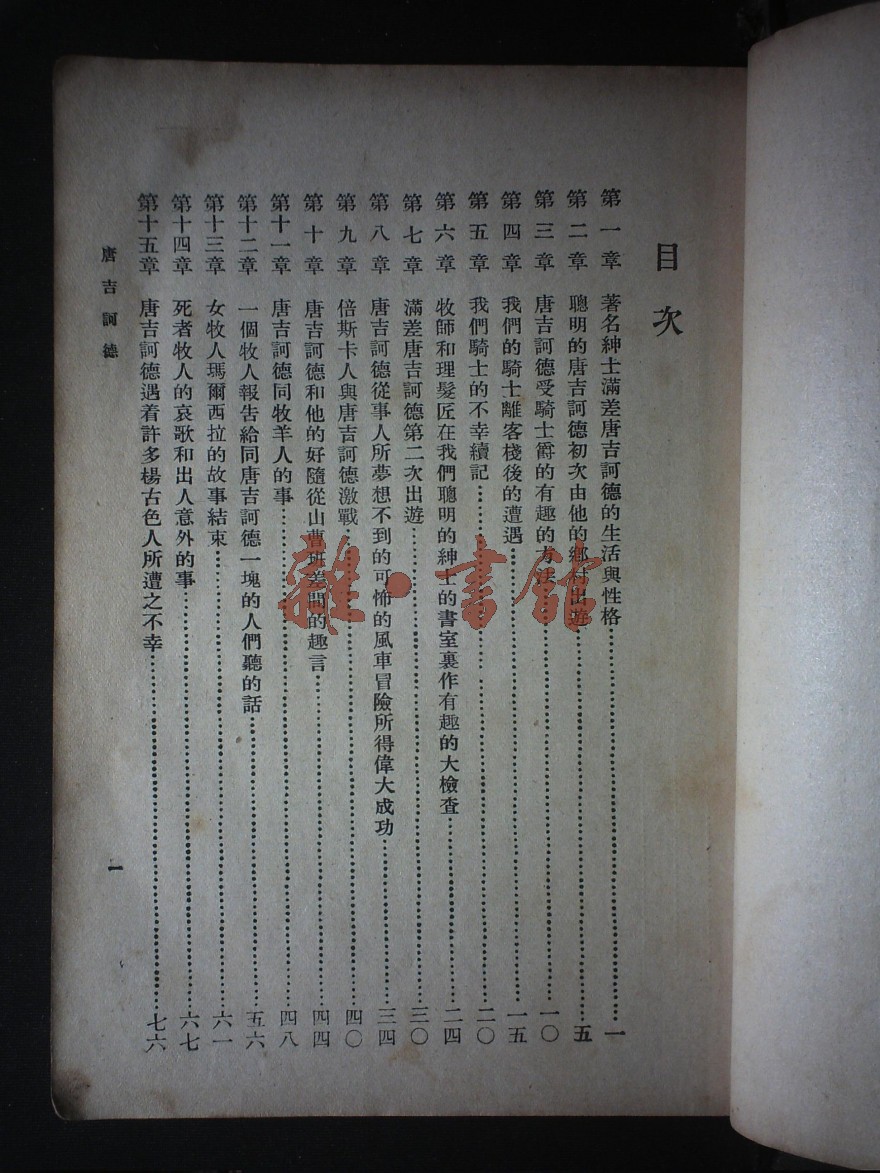 目次
第一章 著名紳士滿差唐吉訶德的生活與性格…………一
第二章 聰明的唐吉訶德初次由他的鄉村出遊…………五
第三章 唐吉訶德受騎士爵的有趣的方法…………一〇
第四章 我們的騎士離客棧後的遭遇…………一五
第五章 我們騎士的不幸續記…………二〇
第六章 牧師和理髮匠在我們聰明的紳士的書室裏作有趣的大檢查…………二四
第七章 滿差唐吉訶德第二次出遊…………三〇
第八章 唐吉訶德從事人所夢想不到的可怖的風車冒險所得偉大成功…………三四
第九章 倍斯卡人與唐吉訶德激戰…………四〇
第十章 唐吉訶德和他的好隨從山曹班差間的趣言…………四四
第十一章 唐吉訶德同牧羊人的事…………四八
第十二章 一個牧人報告給同唐吉訶德一塊的人們聽的話…………五六
第十三章 女牧人瑪爾西拉的故事結束…………六一
第十四章 死者牧人的哀歌和出人意外的事…………六七
第十五章 唐吉訶德遇着許多楊古色人所遭之不幸…………七六
唐吉訶德
一
雜·書館